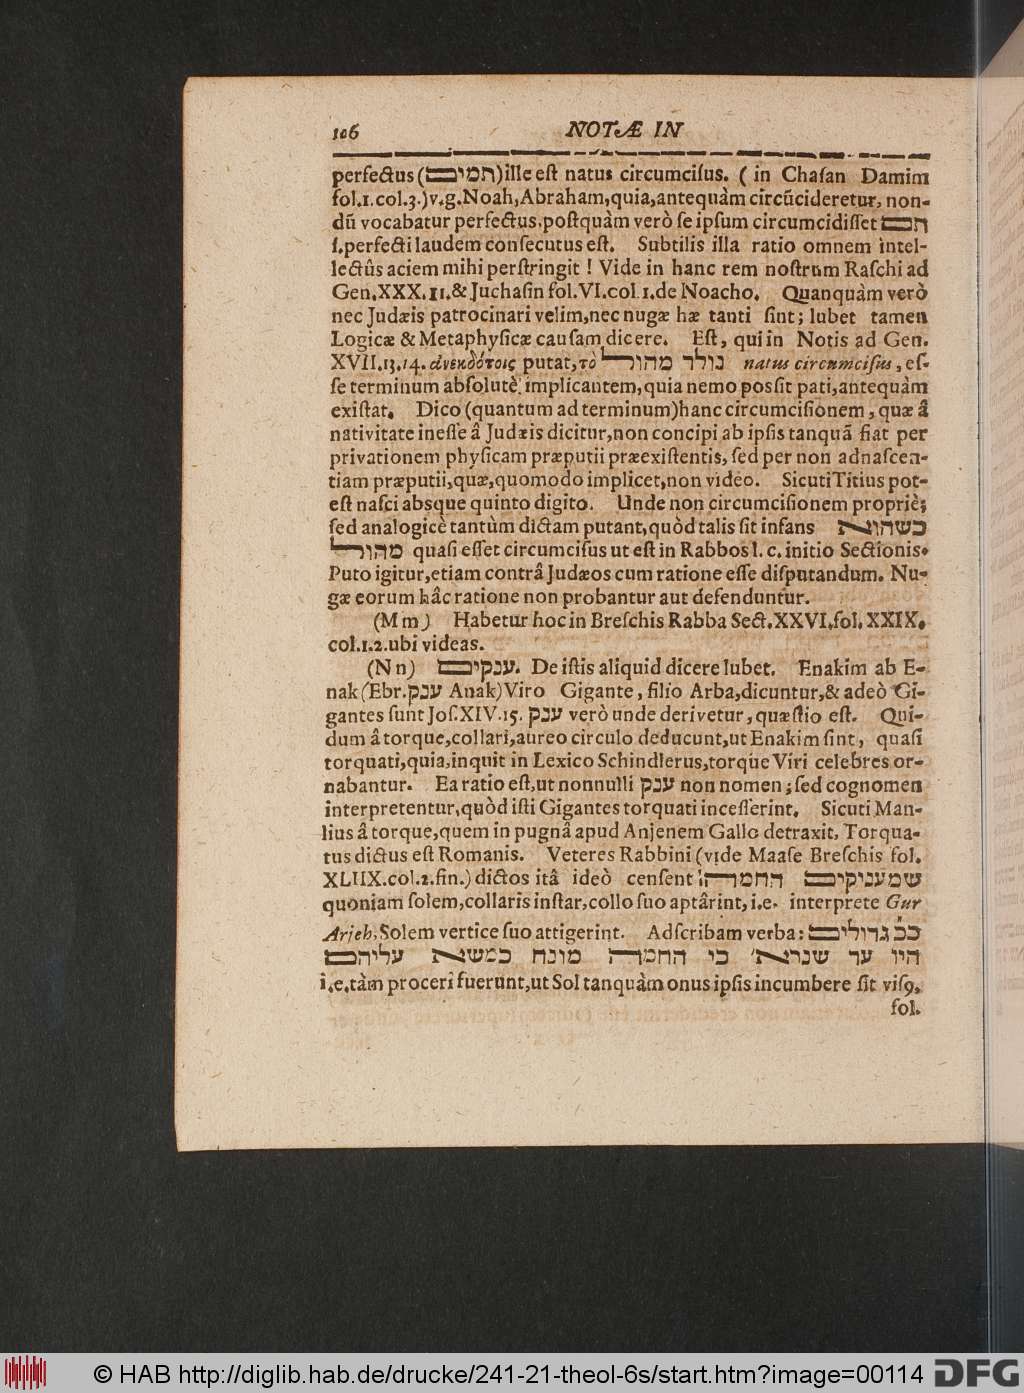 106 NOTÆ IN
perfectus (תמים) ille eſt natus circumciſus. ( in Chaſan Damim
fol.1.col.3.)v.g.Noah,Abraham,quia,antequàm circũcideretur, non-
dũ vocabatur perfectus,poſtquàm verò ſe ipſum circumcidiſſet תם
ſ.perfecti laudem conſecutus eſt. Subtilis illa ratio omnem intel-
lectûs aciem mihi perſtringit ! Vide in hanc rem noſtrum Raſchi ad
Gen.XXX.11.& Juchaſin fol.VI.col 1.de Noacho. Quanquàm verò
nec Judæis patrocinari velim,nec nugæ hæ tanti ſint; lubet tamen
Logicæ & Metaphyſicæ cauſam dicere. Eſt, qui in Notis ad Gen.
XVII.13.14. ἀνεκδότοις putat, τὸ נולד מהול natus circumciſus, eſ-
ſe terminum abſolutè implicantem,quia nemo poſſit pati,antequàm
exiſtat. Dico (quantum ad terminum)hanc circumciſionem, quæ â
nativitate ineſſe â Judæis dicitur,non concipi ab ipſis tanquã fiat per
privationem phyſicam præputii præexiſtentis, ſed per non adnaſcen-
tiam præputii,quæ,quomodo implicet,non video. Sicuti Titius pot-
eſt naſci absque quinto digito. Unde non circumciſionem propriè;
ſed analogicè tantùm dictam putant,quòd talis ſit infans כשהוא
מהול quaſi eſſet circumciſus ut eſt in Rabbos l. c. initio Sectionis.
Puto igitur,etiam contrâ Judæos cum ratione eſſe diſputandum. Nu-
gæ eorum hâc ratione non probantur aut defenduntur.
(M m) Habetur hoc in Breſchis Rabba Sect.XXVI.fol.XXIX.
col.1.2.ubi videas.
(N n) ענקים. De iſtis aliquid dicere lubet. Enakim ab E-
nak (Ebr.ענק Anak) Viro Gigante, filio Arba,dicuntur,& adeò Gi-
gantes ſunt Joſ.XIV.15. ענק verò unde derivetur, quæſtio eſt. Qui-
dum â torque,collari,aureo circulo deducunt,ut Enakim ſint, quaſi
torquati,quia,inquit in Lexico Schindlerus,torque Viri celebres or-
nabantur. Ea ratio eſt,ut nonnulli ענק non nomen; ſed cognomen
interpretentur,quòd iſti Gigantes torquati inceſſerint. Sicuti Man-
lius â torque,quem in pugnâ apud Anjenem Gallo detraxit, Torqua-
tus dictus eſt Romanis. Veteres Rabbini (vide Maaſe Breſchis fol.
XLIIX.col.2.fin.) dictos itâ ideò cenſent שמעניקים החמה
quoniam ſolem,collaris inſtar,collo ſuo aptârint, i.e. interprete Gur
Arjeh,Solem vertice ſuo attigerint. Adſcribam verba: כ״כ גדולים
היו עד שנראי כי החמה מונח כמשא עליהם
i.e.tàm proceri fuerunt,ut Sol tanquàm onus ipſis incumbere ſit viſꝰ.
fol.
© HAB http://diglib.hab.de/drucke/241-21-theol-6s/start.htm?image=00114 DFG